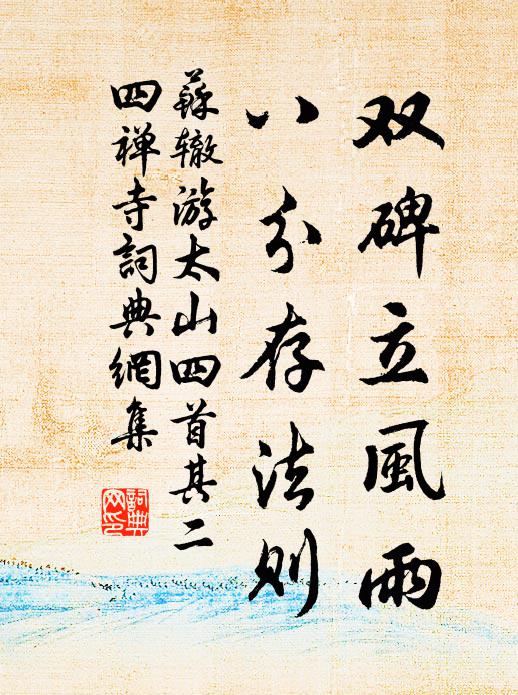 双碑立風雨
八分存法则
蘇辙游太山四首其二
四禅寺詞典網集
詞典
网印